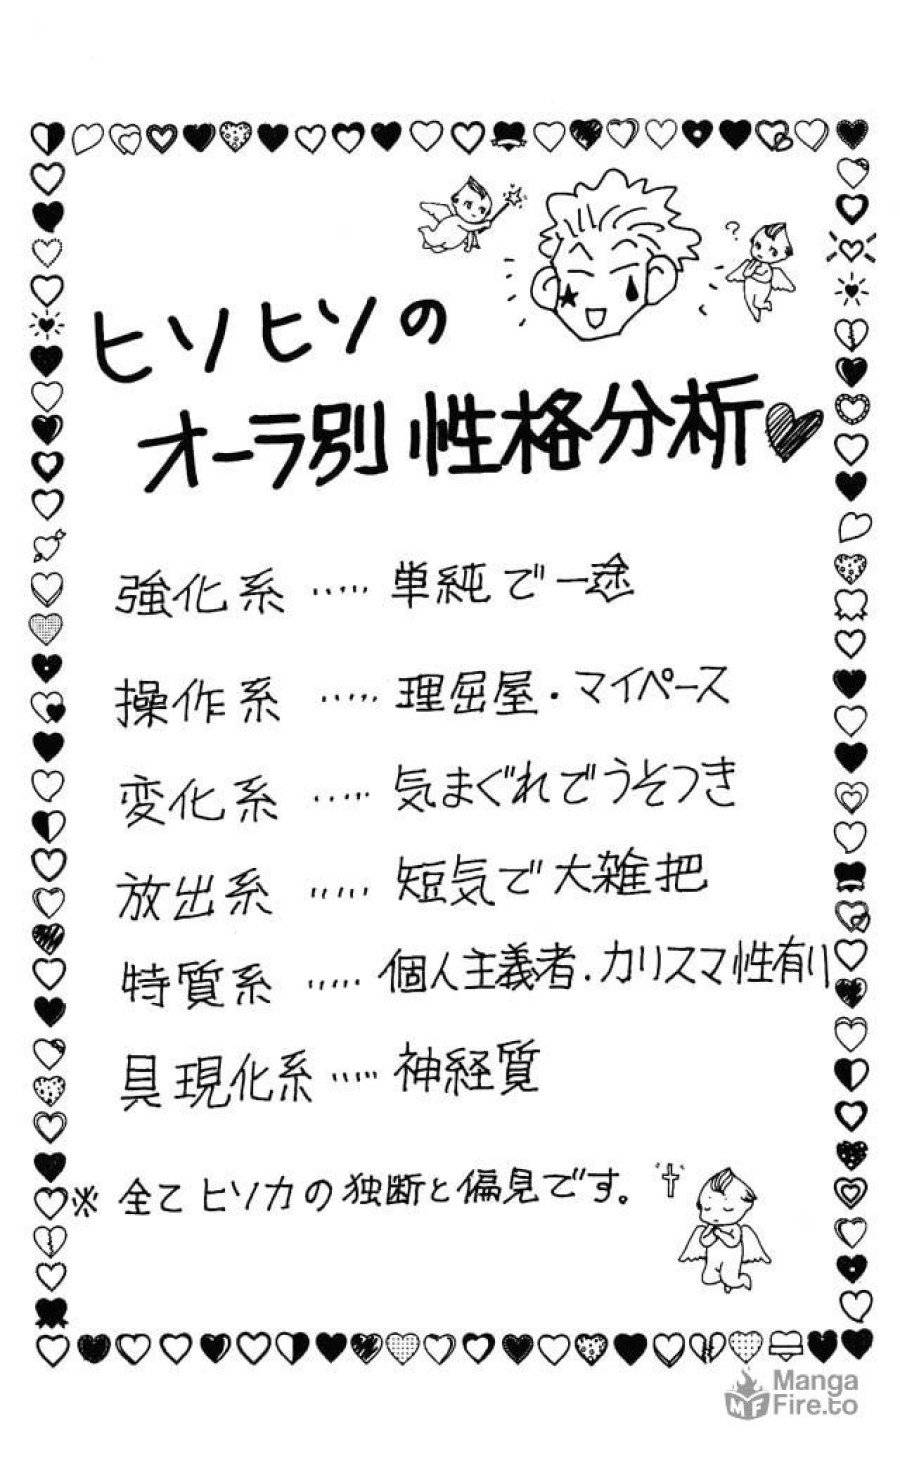 ヒソヒソの
オーラ別 性格分析♥
強化系 ‥‥‥ 単純で一途
操作系 ‥‥‥ 理屈屋・マイペース
変化系 ‥‥‥ 気まぐれでうそつき
放出系 ‥‥‥ 短気で大雑把
特質系 ‥‥‥ 個人主義者・カリスマ性有り
具現化系 ‥‥‥ 神経質
※ 全てヒソカの独断と偏見です。
Manga
MF Fire.to